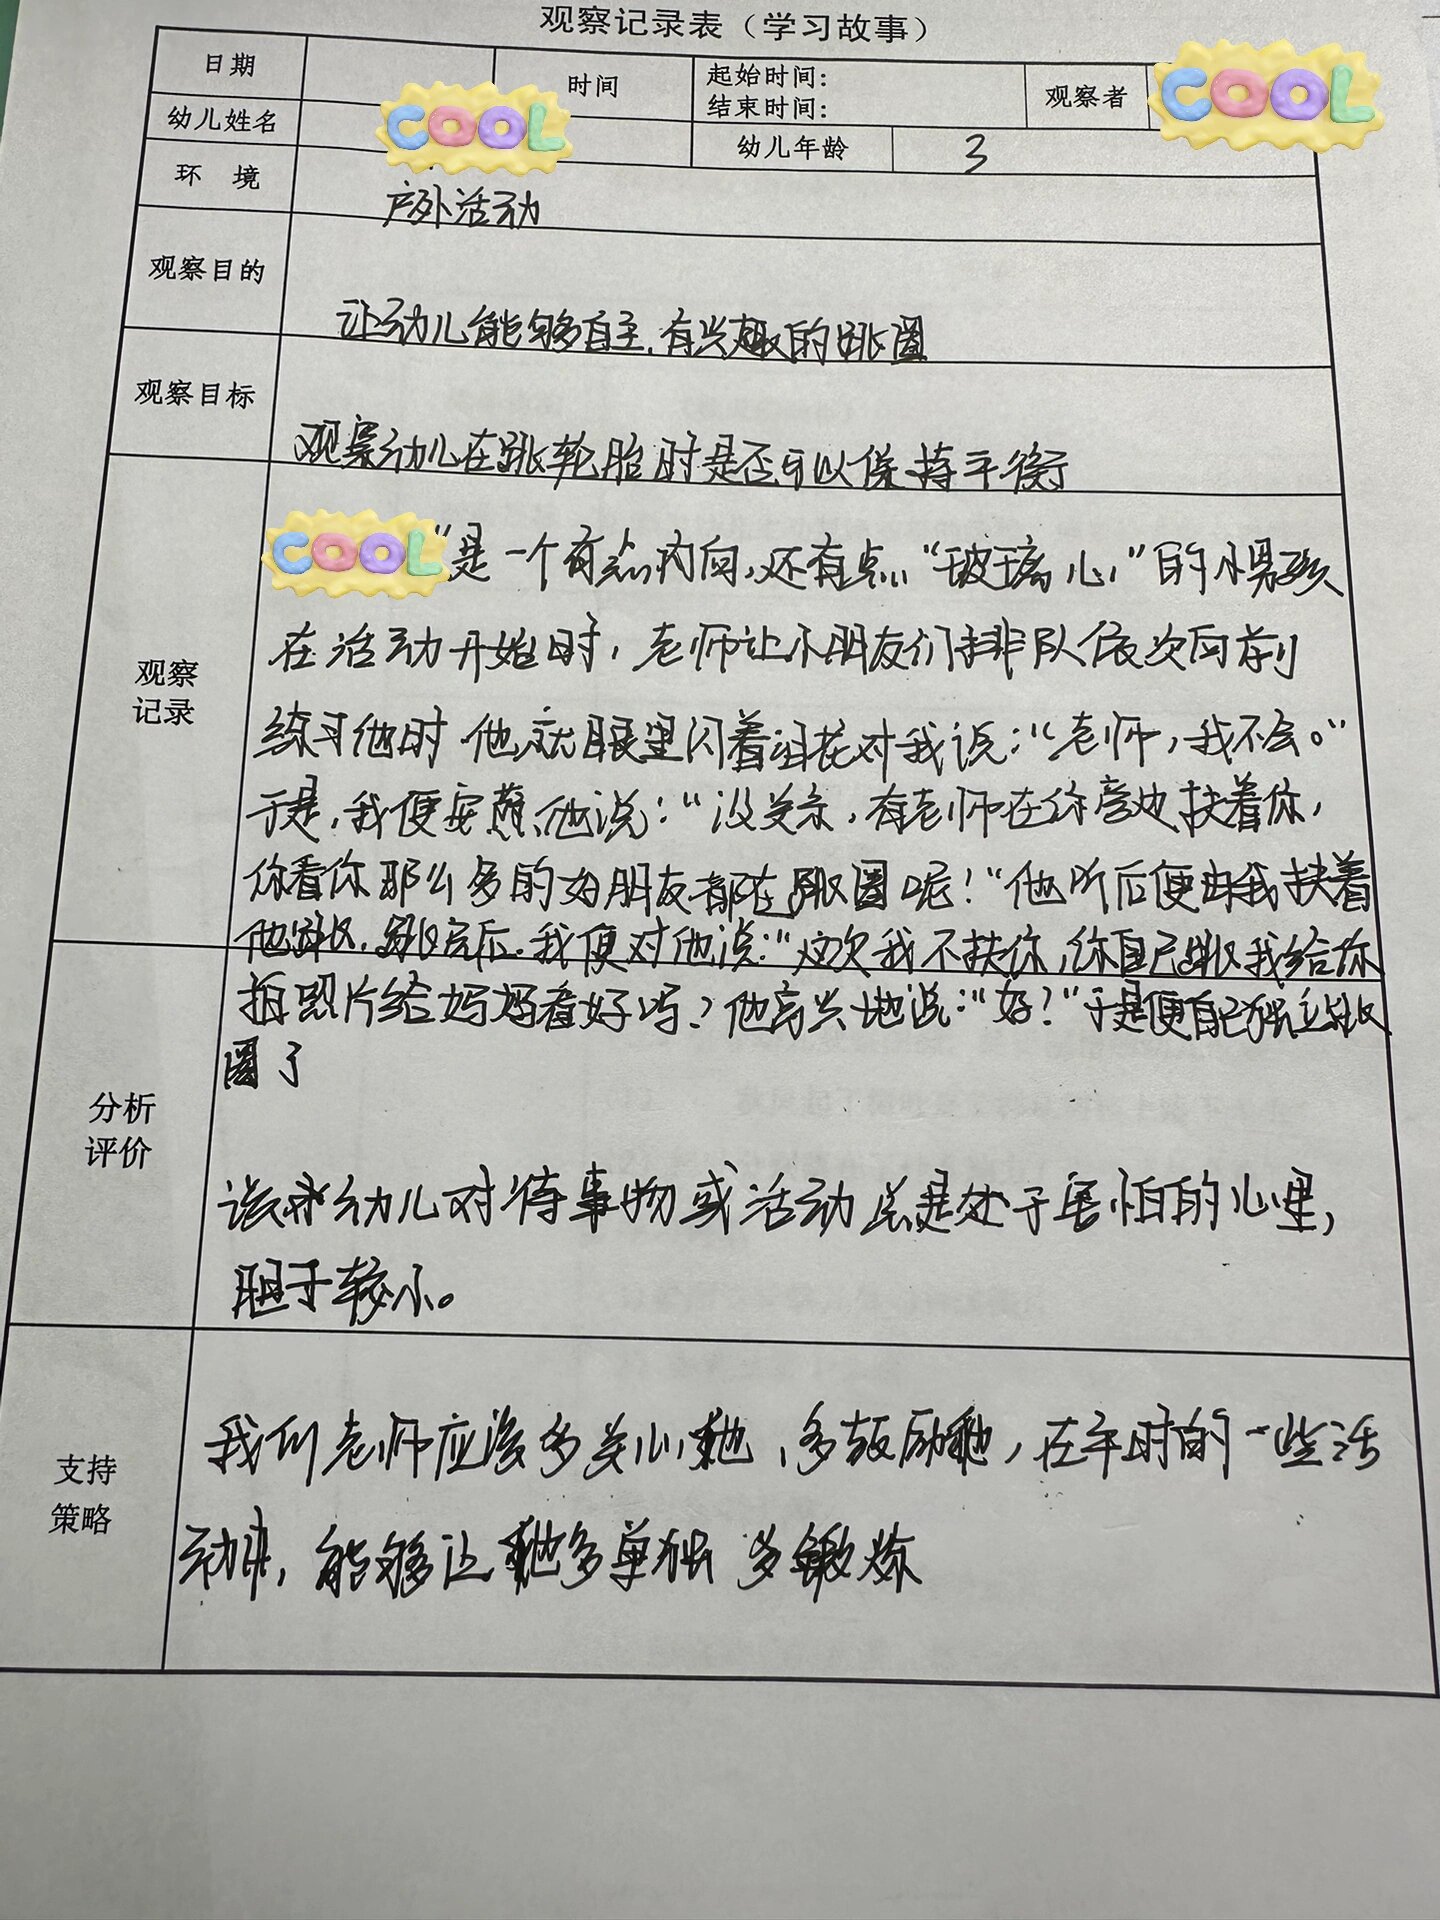 观察记录表（学习故事）
日期
时间
起始时间：
结束时间：
观察者
COOL
幼儿姓名
COOL
幼儿年龄
3
环 境
户外活动
观察目的
让幼儿能够自主、有兴趣的跳圈
观察目标
观察幼儿在跳轮胎时是否可以保持平衡
观察
记录
COOL
”是一个有点内向，还有点“玻璃心”的小男孩
在活动开始时，老师让小朋友们排队依次向前
练习他时 他就眼里闪着泪花对我说：“老师，我不会。”
于是，我便安慰他说：“没关系，有老师在你旁边扶着你，
你看你那么多的好朋友都在跳圈呢！“他听后便由我扶着
他跳，跳完后，我便对他说：“这次我不扶你，你自己跳我给你
拍照片给妈妈看好吗？他高兴地说：“好！”于是便自己独立跳
圈了
分析
评价
该幼儿对待事物或活动总是处于害怕的心里，
胆子较小。
支持
策略
我们老师应该多关心他、多鼓励他，在平时的一些活
动中，能够让他多单独 多锻炼